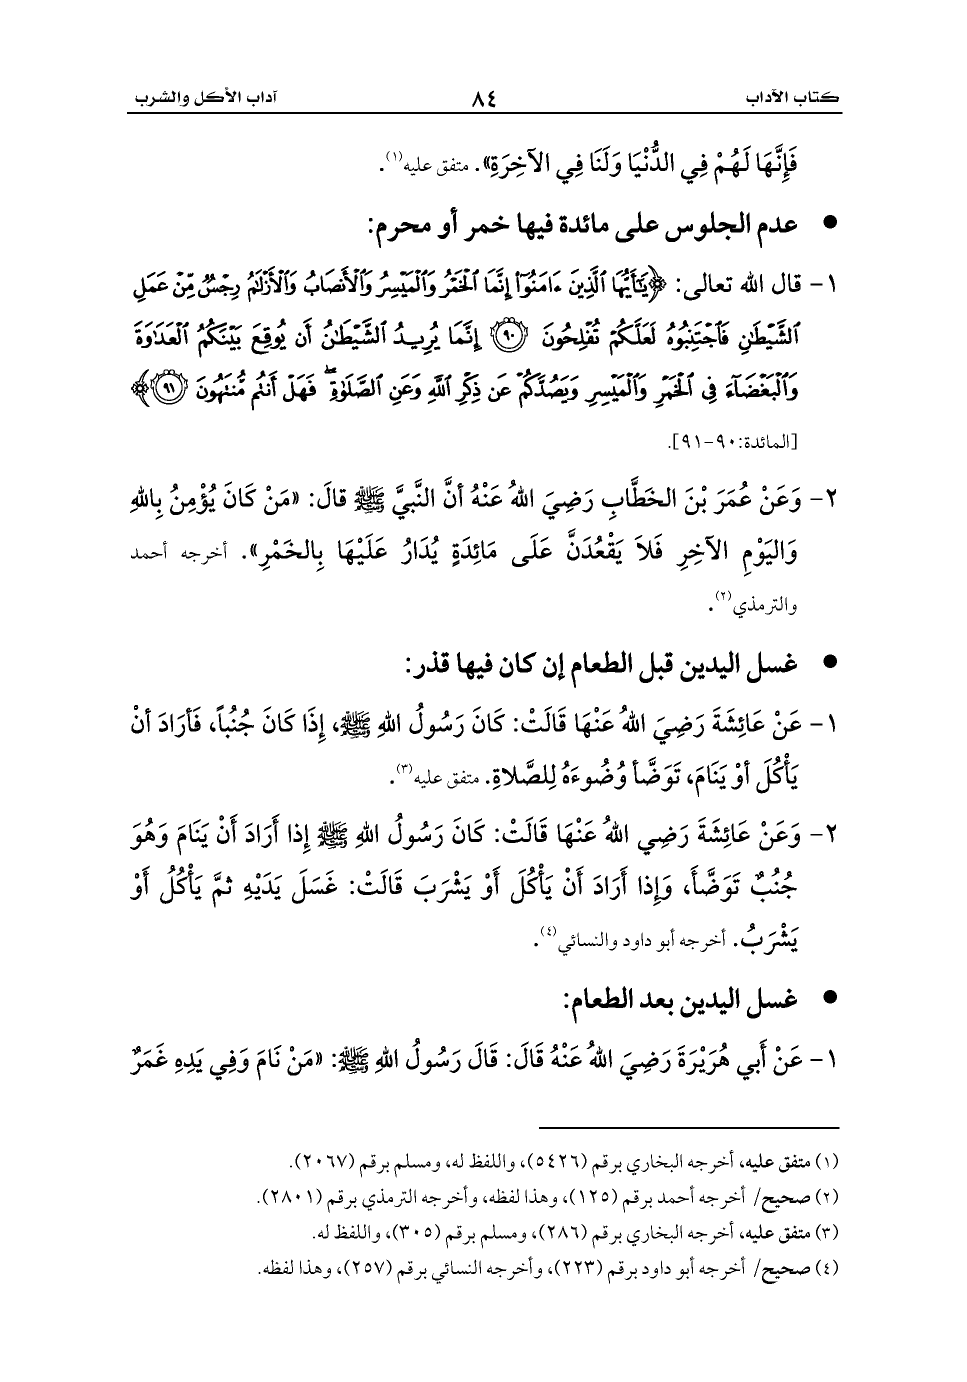 كتاب الآداب ٨٤ آداب الأكل والشرب
فَإِنَّهَا لَهُمْ فِي الدُّنْيَا وَلَنَا فِي الآخِرَةِ». متفق عليه(١).
● عدم الجلوس على مائدة فيها خمر أو محرم:
١- قال الله تعالى: ﴿يَٰٓأَيُّهَا ٱلَّذِينَ ءَامَنُوٓا۟ إِنَّمَا ٱلْخَمْرُ وَٱلْمَيْسِرُ وَٱلْأَنصَابُ وَٱلْأَزْلَٰمُ رِجْسٌ مِّنْ عَمَلِ
ٱلشَّيْطَٰنِ فَٱجْتَنِبُوهُ لَعَلَّكُمْ تُفْلِحُونَ ۝٩٠ إِنَّمَا يُرِيدُ ٱلشَّيْطَٰنُ أَن يُوقِعَ بَيْنَكُمُ ٱلْعَدَٰوَةَ
وَٱلْبَغْضَآءَ فِى ٱلْخَمْرِ وَٱلْمَيْسِرِ وَيَصُدَّكُمْ عَن ذِكْرِ ٱللَّهِ وَعَنِ ٱلصَّلَوٰةِ ۖ فَهَلْ أَنتُم مُّنتَهُونَ ۝٩١﴾
[المائدة:٩٠-٩١].
٢- وَعَنْ عُمَرَ بْنَ الخَطَّابِ رَضِيَ اللهُ عَنْهُ أنَّ النَّبِيَّ ﷺ قالَ: «مَنْ كَانَ يُؤْمِنُ بِاللهِ
وَاليَوْمِ الآخِرِ فَلاَ يَقْعُدَنَّ عَلَى مَائِدَةٍ يُدَارُ عَلَيْهَا بِالخَمْرِ». أخرجه أحمد
والترمذي(٢).
● غسل اليدين قبل الطعام إن كان فيها قذر:
١- عَنْ عَائِشَةَ رَضِيَ اللهُ عَنْهَا قَالَتْ: كَانَ رَسُولُ اللهِ ﷺ، إِذَا كَانَ جُنُباً، فَأرَادَ أنْ
يَأْكُلَ أوْ يَنَامَ، تَوَضَّأ وُضُوءَهُ لِلصَّلاةِ. متفق عليه(٣).
٢- وَعَنْ عَائِشَةَ رَضِي اللهُ عَنْهَا قَالَتْ: كَانَ رَسُولُ اللهِ ﷺ إِذا أَرَادَ أَنْ يَنَامَ وَهُوَ
جُنُبٌ تَوَضَّأَ، وَإِذا أَرَادَ أَنْ يَأْكُلَ أَوْ يَشْرَبَ قَالَتْ: غَسَلَ يَدَيْهِ ثمَّ يَأْكُلُ أَوْ
يَشْرَبُ. أخرجه أبو داود والنسائي(٤).
● غسل اليدين بعد الطعام:
١- عَنْ أَبي هُرَيْرَةَ رَضِيَ اللهُ عَنْهُ قَالَ: قَالَ رَسُولُ اللهِ ﷺ: «مَنْ نَامَ وَفِي يَدِهِ غَمَرٌ
(١) متفق عليه، أخرجه البخاري برقم (٥٤٢٦)، واللفظ له، ومسلم برقم (٢٠٦٧).
(٢) صحيح/ أخرجه أحمد برقم (١٢٥)، وهذا لفظه، وأخرجه الترمذي برقم (٢٨٠١).
(٣) متفق عليه، أخرجه البخاري برقم (٢٨٦)، ومسلم برقم (٣٠٥)، واللفظ له.
(٤) صحيح/ أخرجه أبو داود برقم (٢٢٣)، وأخرجه النسائي برقم (٢٥٧)، وهذا لفظه.